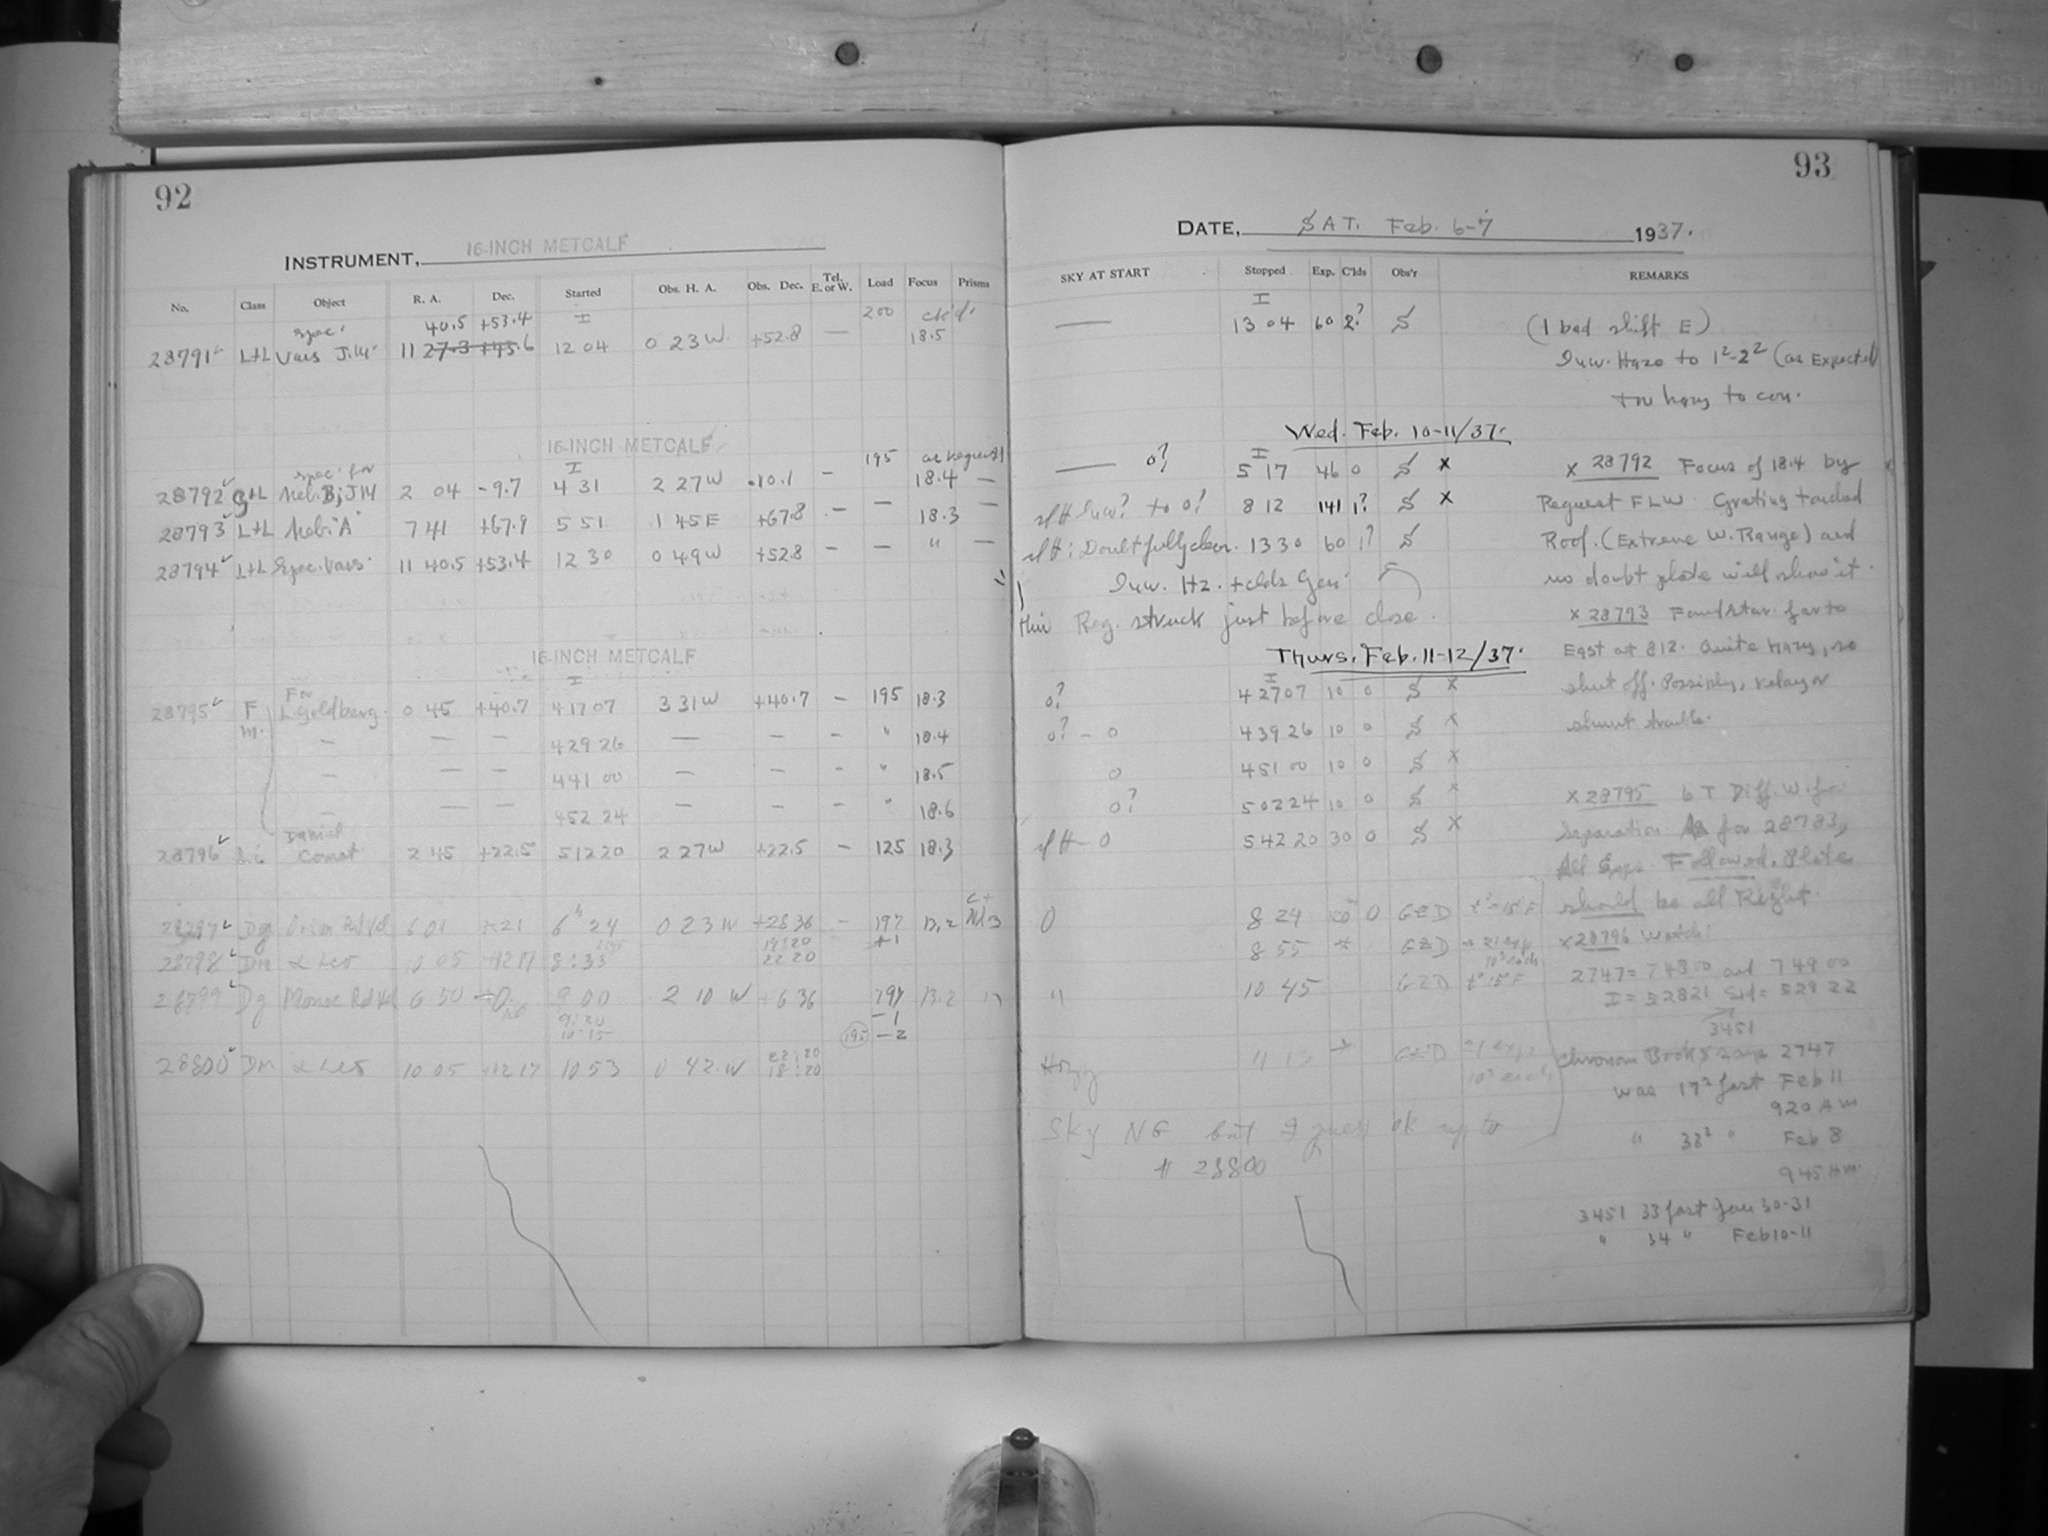 92
INSTRUMENT, 16-INCH METCALF
No. Class Object R. A. Dec. Started Obs. H. A. Obs. Dec. Tel. E. or W. Load Focus Prisms
spec. 40.5 +53.4 I 200 ck'd.
28791 L+L Vars J.M. 11 27.3 +45.6 12 04 0 23 W +52.8 — 18.5
16-INCH METCALF
spec. for I 195 as request
28792 G+L Neb. B; JM 2 04 -9.7 4 31 2 27W -10.1 - 18.4 —
28793 L+L Neb. "A" 7 41 +67.9 5 51 1 45E +67.8 - — 18.3 —
28794 L+L Spec. Vars. 11 40.5 +53.4 12 30 0 49W +52.8 - — " —
16-INCH METCALF
For I
28795 F L. Goldberg. 0 45 +40.7 4 17 07 3 31W +40.7 - 195 18.3
m. — — — 4 29 26 — — - " 18.4
— — — 4 41 00 — — - " 18.5
— — — 4 52 24 — — - " 18.6
Daniel
28796 Li Comet 2 45 +22.5 5 12 20 2 27W +22.5 - 125 18.3
28797 Dg 6 01 +21 6h 24 0 23 W +28 36 - 197 13.2
+1
28798 Dm α Leo 10 05 +12 17 8:33 19:20
22 20
28799 Dg Monoc Rd Vel 6 50 9 00 2 10 W +6 36 197 13.2 "
9:20 -1
10:15 195 -2
28800 Dm α Leo 10 05 +12 17 10 53 0 42 W 22:20
18:20
93
DATE, SAT. Feb. 6-7 1937.
SKY AT START Stopped Exp. C'lds Obs'r REMARKS
I
— 13 04 60 2? S (1 bad shift E)
Inw. Haze to 1²-2² (as Expected
Too hazy to con.
Wed. Feb. 10-11/37.
I
— 0? 5 17 46 0 S x x 28792 Focus of 18.4 by
to 0? 8 12 141 1? S x Request FLW. Grating touched
Doubtfully clear. 13 30 60 1? S Roof. (Extreme W. Range) and
Inw. Hz. + clds Gen. no doubt plate will show it.
Reg. struck just before close. x 28793 Found star far to
East at 812. Quite hazy, so
shut off. Possibly, relay or
shunt trouble.
Thurs. Feb. 11-12/37.
I
0? 4 27 07 10 0 S x
0? - 0 4 39 26 10 0 S x
0 4 51 00 10 0 S x
0? 5 02 24 10 0 S x
- 0 5 42 20 30 0 S x
x 28795 6 T Diff. W. for
Separation as for 28783,
All Exps. Followed. Plate
should be all Right.
0 8 24 0 GZD
8 55 GZD
" 10 45 GZD
Hazy GZD
Sky NG but I guess ok up to
# 28800
x 28796 Watch:
2747 = 7 48 00 and 7 49 00
I = 5 28 21 Sid = 5 29 22
3451
Chronom Book says 2747
was 17² fast Feb 11
920 AM
" 33² " Feb 8
945 AM
3451 33 fast Jan 30-31
" 34 " Feb 10-11